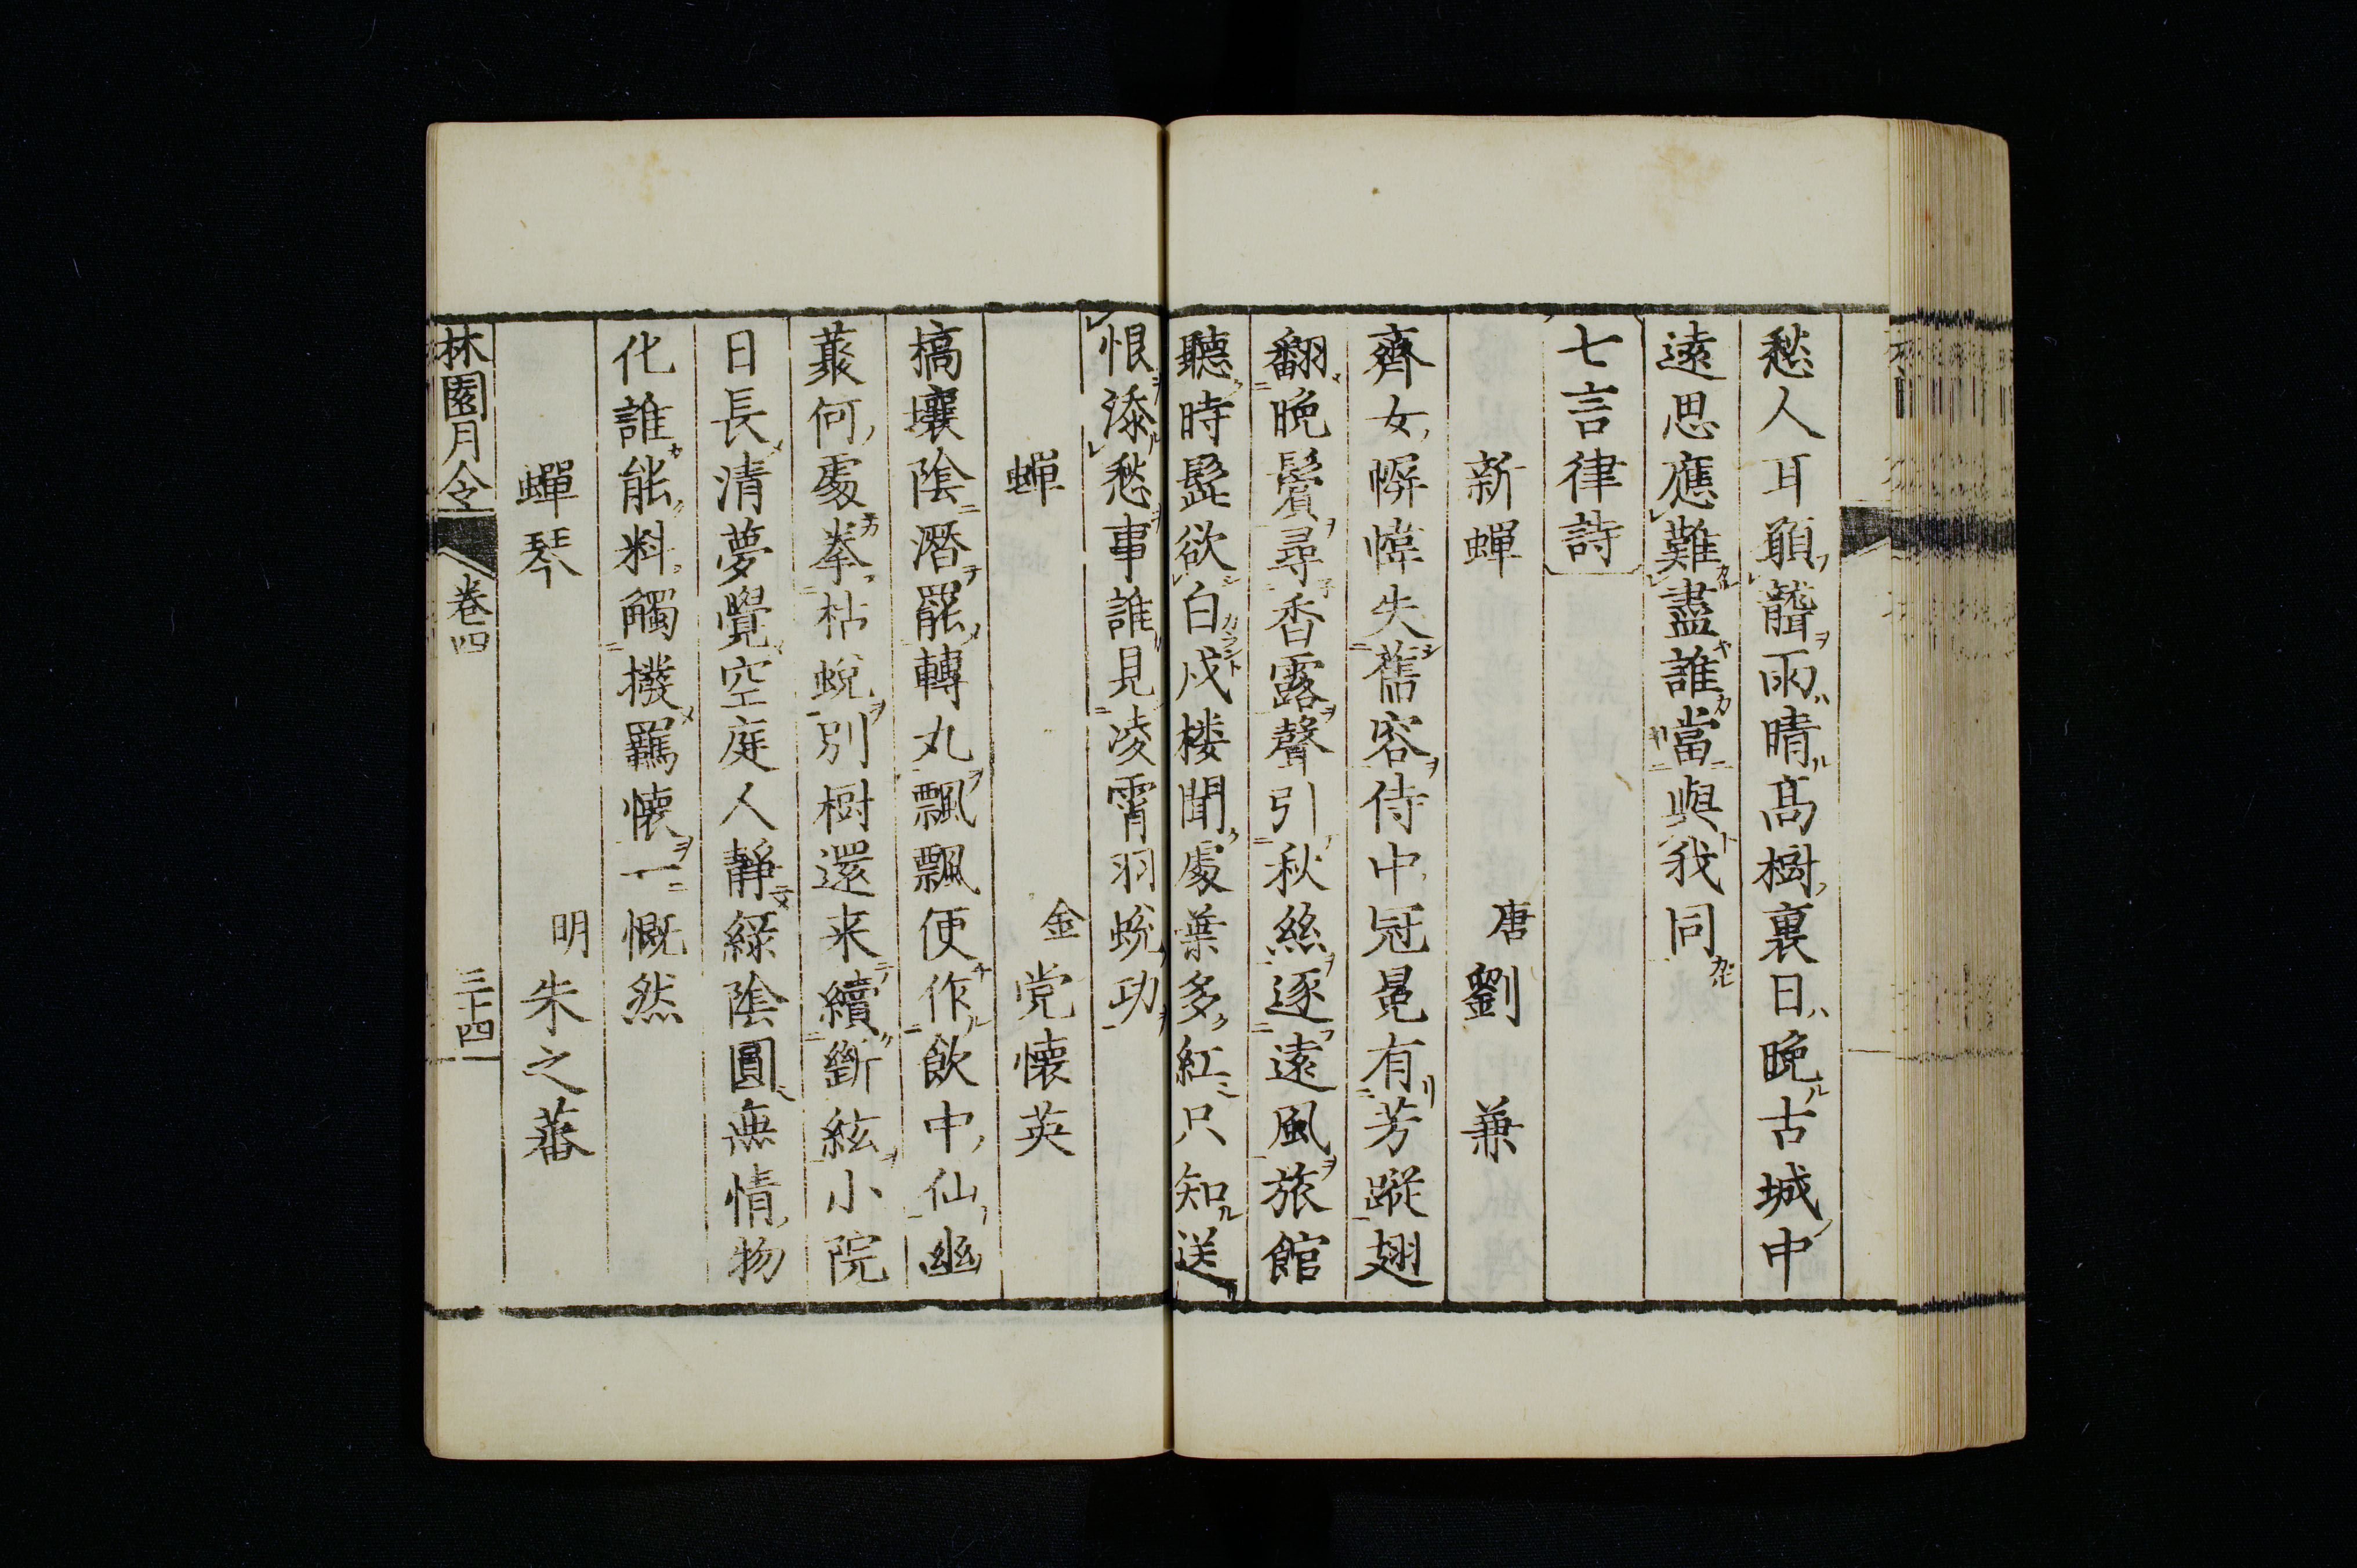 愁人耳願聾雨晴高樹裏日晩古城中
遠思應難盡誰當與我同
七言律詩
新蟬　唐劉　兼
齊女屏幃失舊容侍中冠冕有芳蹤翅
翻晩鬢尋香露聲引秋絲逐遠風旅館
聽時髭欲白戍楼聞處葉多紅只知送
恨添愁事誰見凌霄羽蛻功
蟬　金党懷英
槁壤陰潛罷轉丸飄飄便作飲中仙幽
叢何處拳枯蛻別樹還来續斷絃小院
日長清夢覺空庭人靜緑陰圓無情物
化誰能料觸撥羈懷一慨然
蟬琴　明朱之蕃
林園月令　卷四　三十四